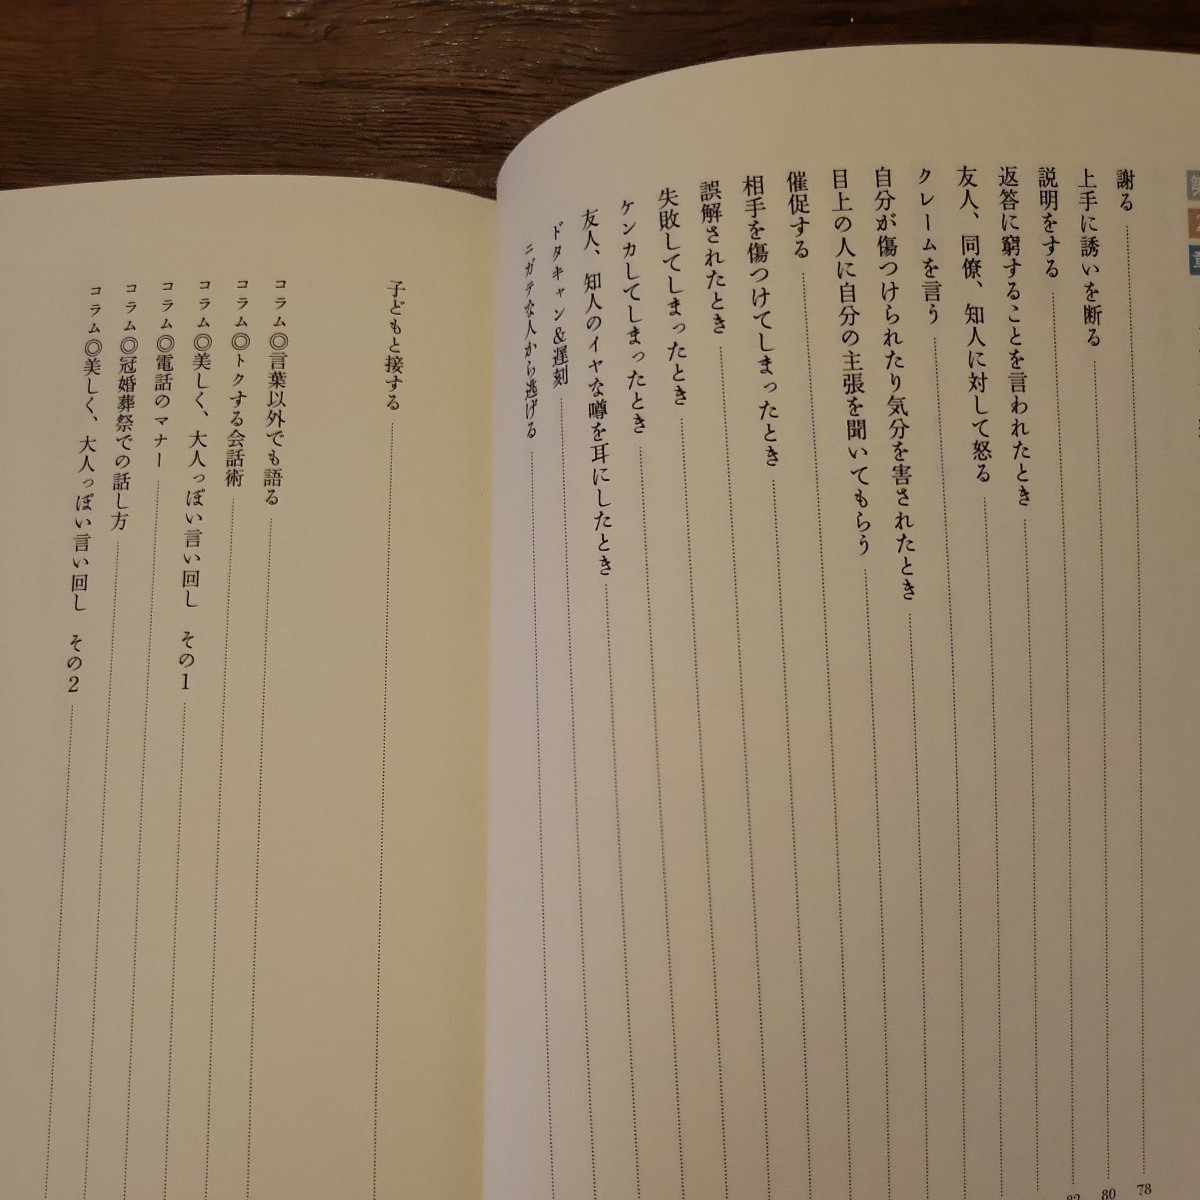 謝る 78
上手に誘いを断る 80
説明をする
返答に窮することを言われたとき
友人、同僚、知人に対して怒る
クレームを言う
自分が傷つけられたり気分を害されたとき
目上の人に自分の主張を聞いてもらう
催促する
相手を傷つけてしまったとき
誤解されたとき
失敗してしまったとき
ケンカしてしまったとき
友人、知人のイヤな噂を耳にしたとき
ドタキャン&遅刻
ニガテな人から逃げる
子どもと接する
コラム◎言葉以外でも語る
コラム◎トクする会話術
コラム◎美しく、大人っぽい言い回し その1
コラム◎電話のマナー
コラム◎冠婚葬祭での話し方
コラム◎美しく、大人っぽい言い回し その2